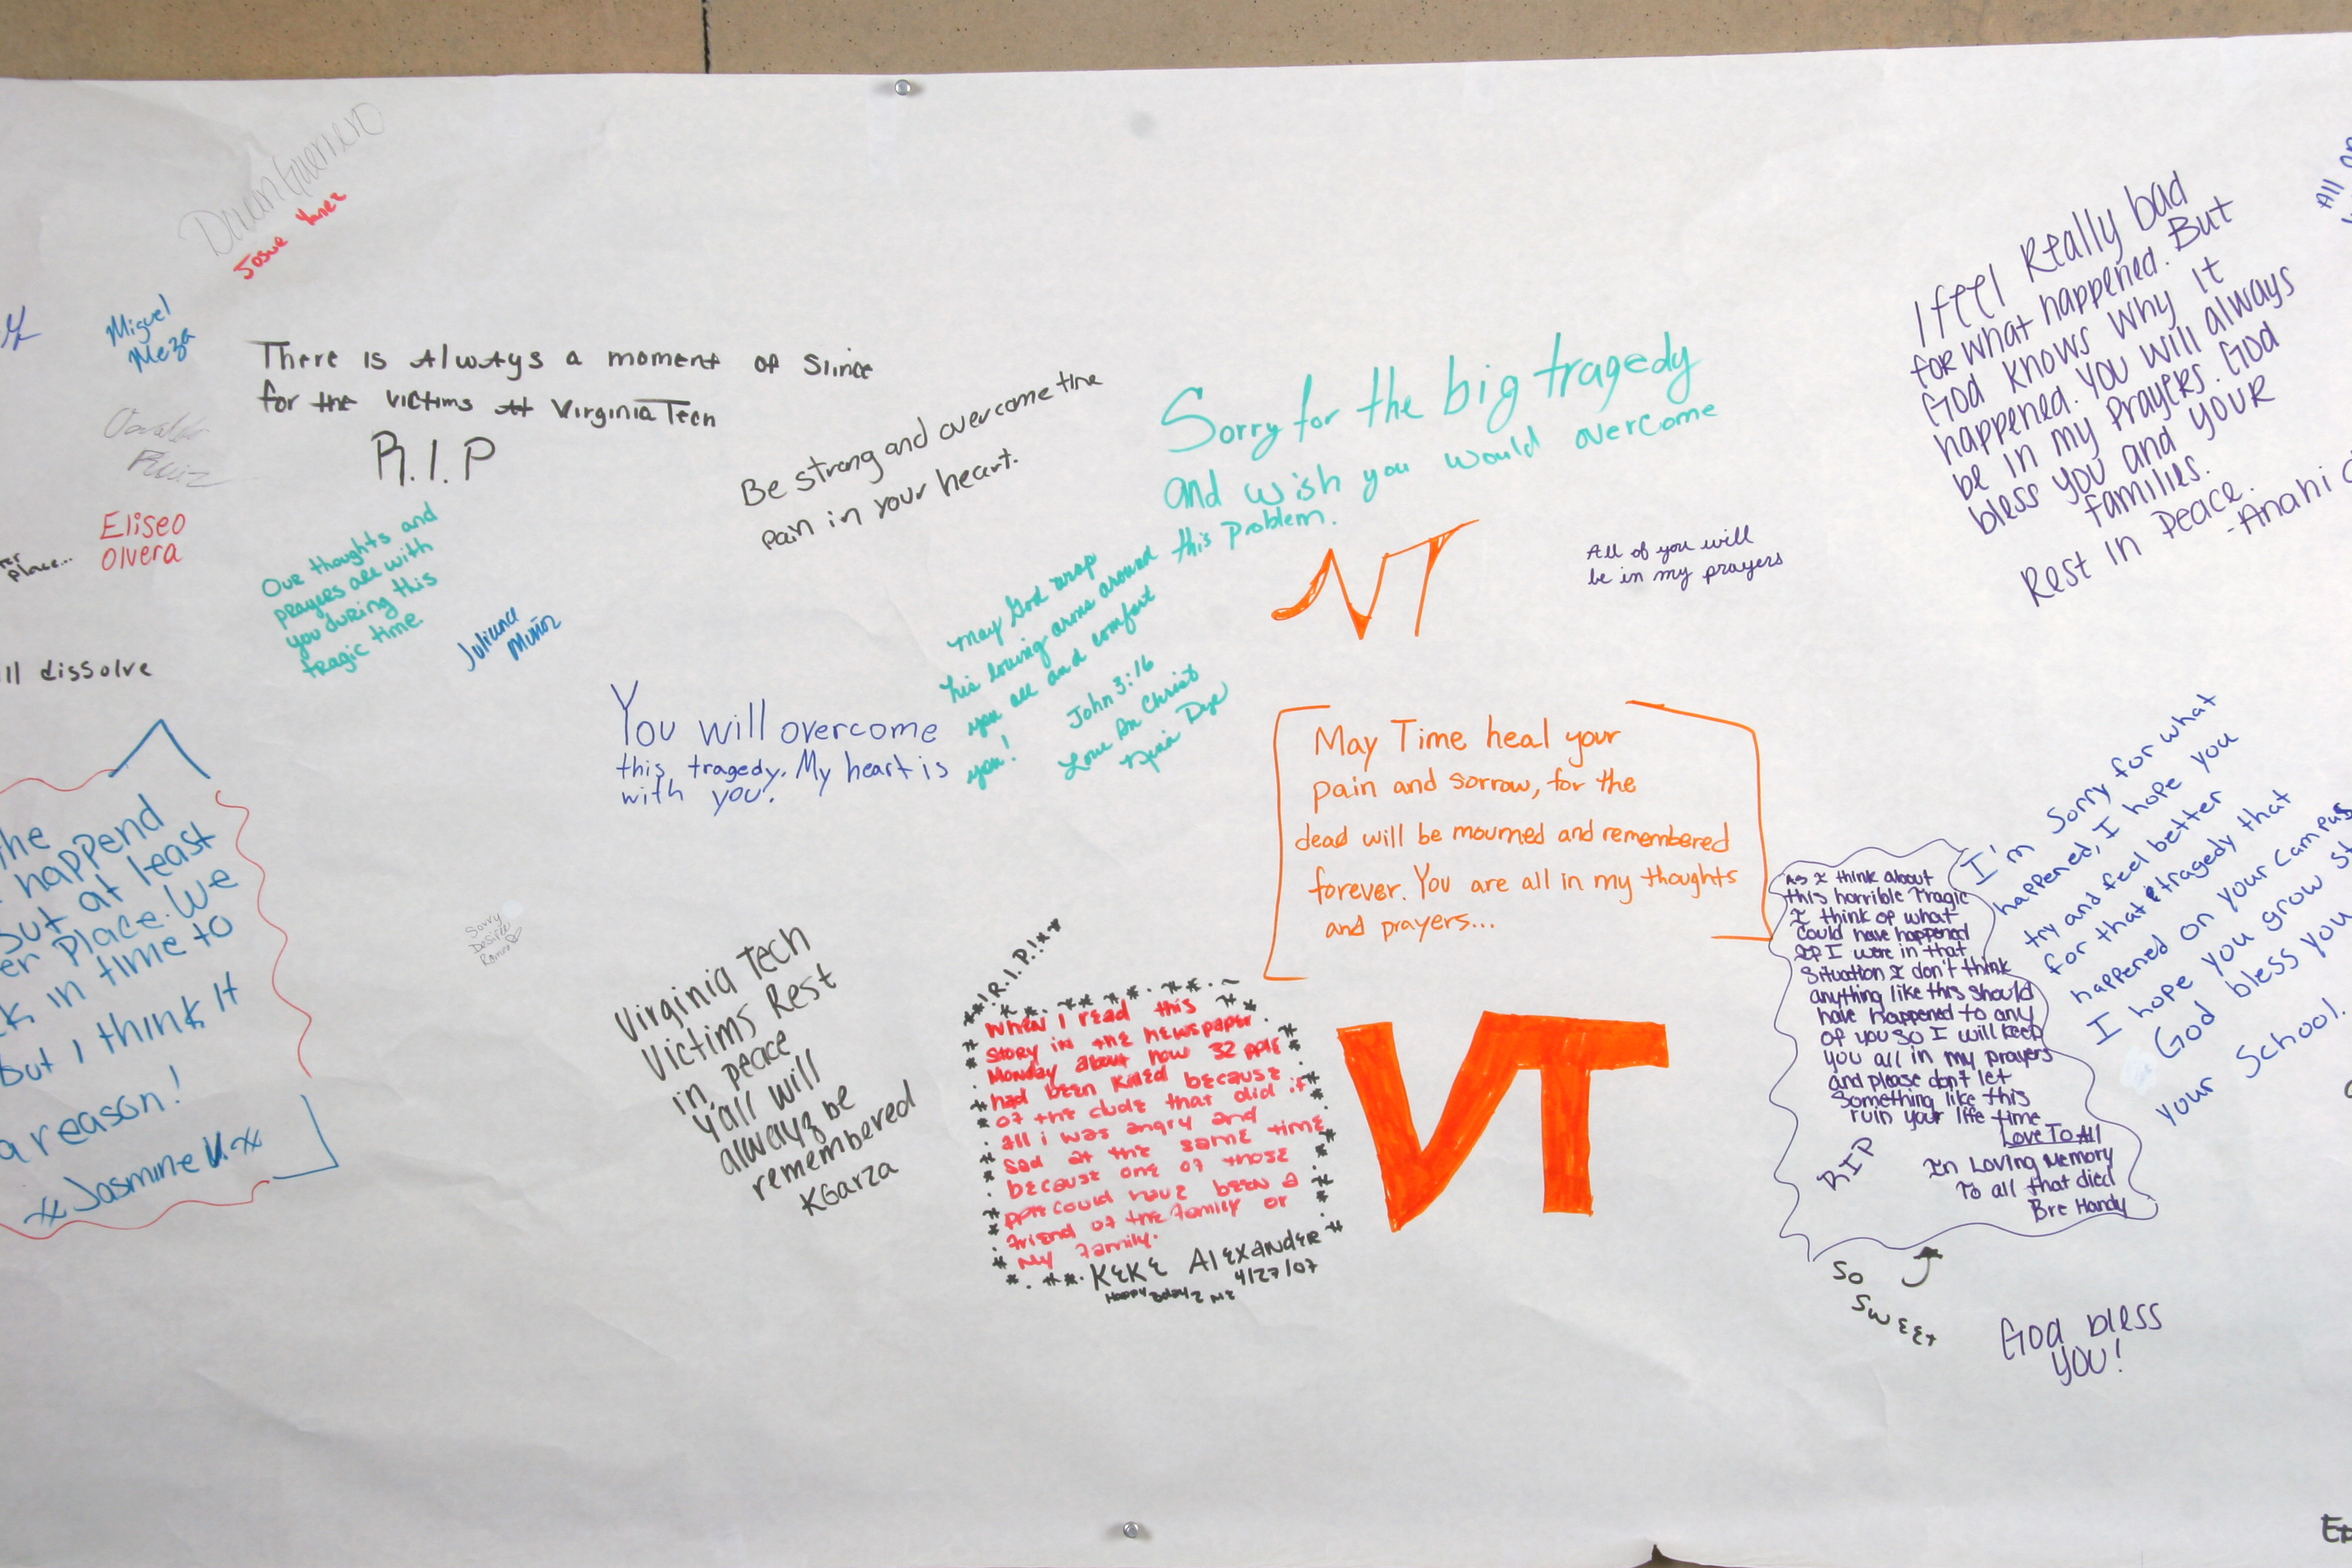 Josue Yanez
Miguel
Meza
There is Always a moment of Slince
for the victims at Virginia Tech
R.I.P
Osvaldo
Ruiz
Eliseo
Olvera
place...
Our thoughts and
prayers are with
you during this
tragic time
Juliana
Muñoz
ll dissolve
Be strong and overcome the
pain in your heart.
Sorry for the big tragedy
and wish you would overcome
this problem.
May God wrap
his loving arms around
you all and comfort
you!
John 3:16
Love In Christ
Dye
VT
All of you will
be in my prayers
I feel Really bad
for what happened. But
God knows why It
happened. You will always
be in my prayers. God
bless you and your
families.
Rest In Peace.
-Anahi
All
You will overcome
this tragedy. My heart is
with you.
May Time heal your
pain and sorrow, for the
dead will be mourned and remembered
forever. You are all in my thoughts
and prayers...
the
happend
but at least
er Place. We
k in time to
but I think It
a reason!
Jasmine V.
Sorry
Desiree
Virginia Tech
Victims Rest
in peace
Y'all will
alwayz be
remembered
KGarza
**!R.I.P!**
When I read this
story in the newspaper
Monday about how 32 pple
had been killed because
of the dude that did it
all i was angry and
sad at the same time
because one of those
pple could have been a
friend of the family or
my family.
KEKE AlExANdER
4/27/07
Happy Bday 2 me
VT
As I think about
this horrible Tragic
I think of what
could have happened
If I were in that
situation I don't think
anything like this should
have happened to any
of you so I will keep
you all in my prayers
and please don't let
something like this
ruin your life time
Love To All
RIP
In Loving Memory
To all that died
Bre Handy
So
Sweet
I'm Sorry for what
happened, I hope you
try and feel better
for that tragedy that
happened on your campus
I hope you grow st
God bless you
your School.
God bless
you!